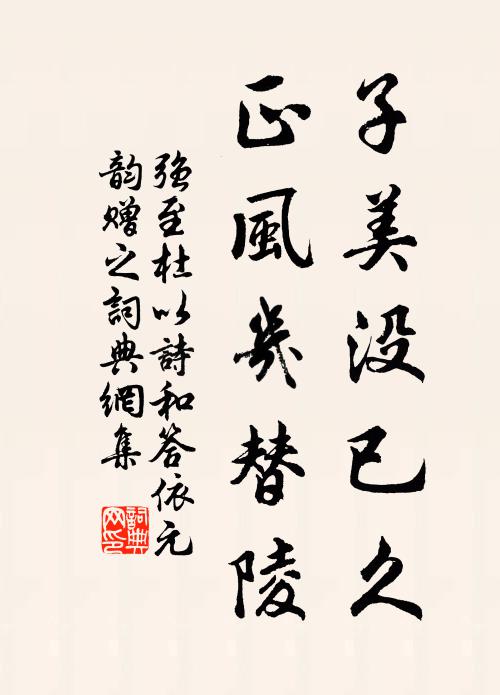 子美没已久
正風幾替陵
強至杜以詩和答依元
韵贈之詞典網集
詞典網印